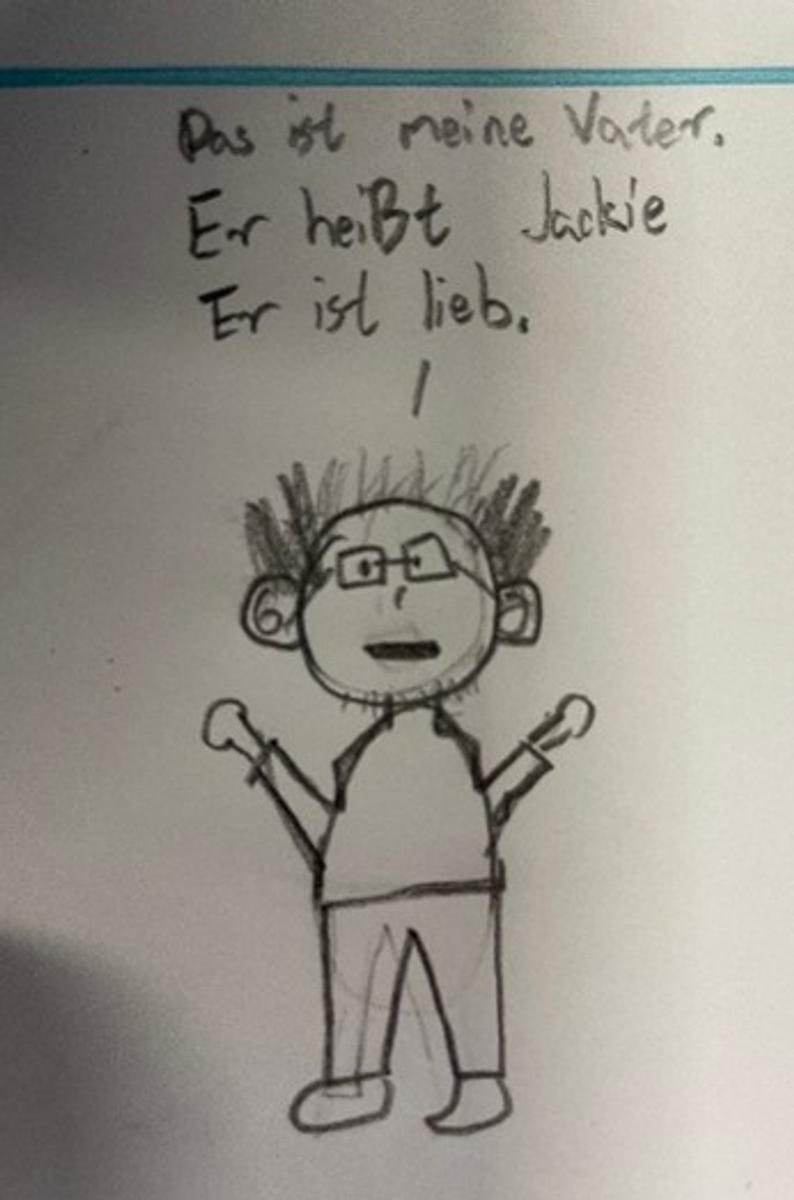 Das ist meine Vater.
Er heißt Jackie
Er ist lieb.